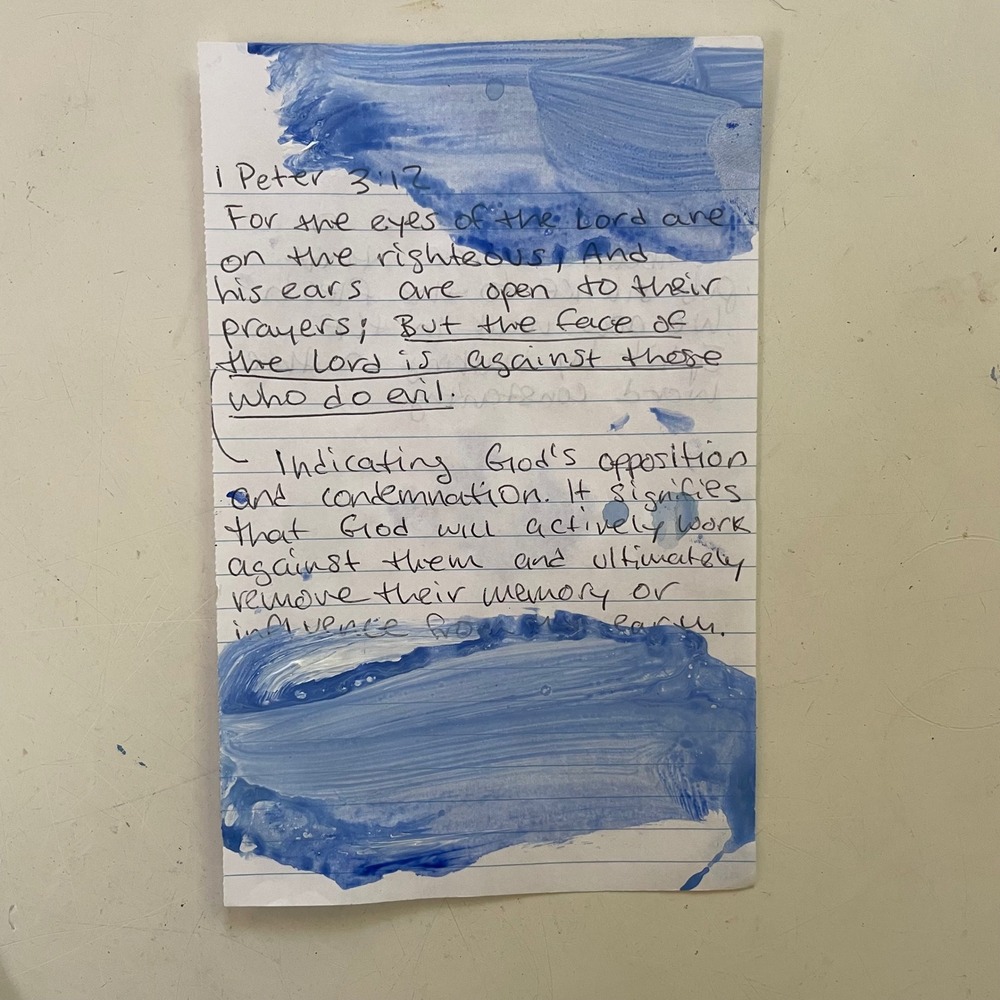 1 Peter 3:12
For the eyes of the Lord are
on the righteous, And
his ears are open to their
prayers; But the face of
the Lord is against those
who do evil.
Indicating God's opposition
and condemnation. It signifies
that God will actively work
against them and ultimately
remove their memory or
influence from the earth.